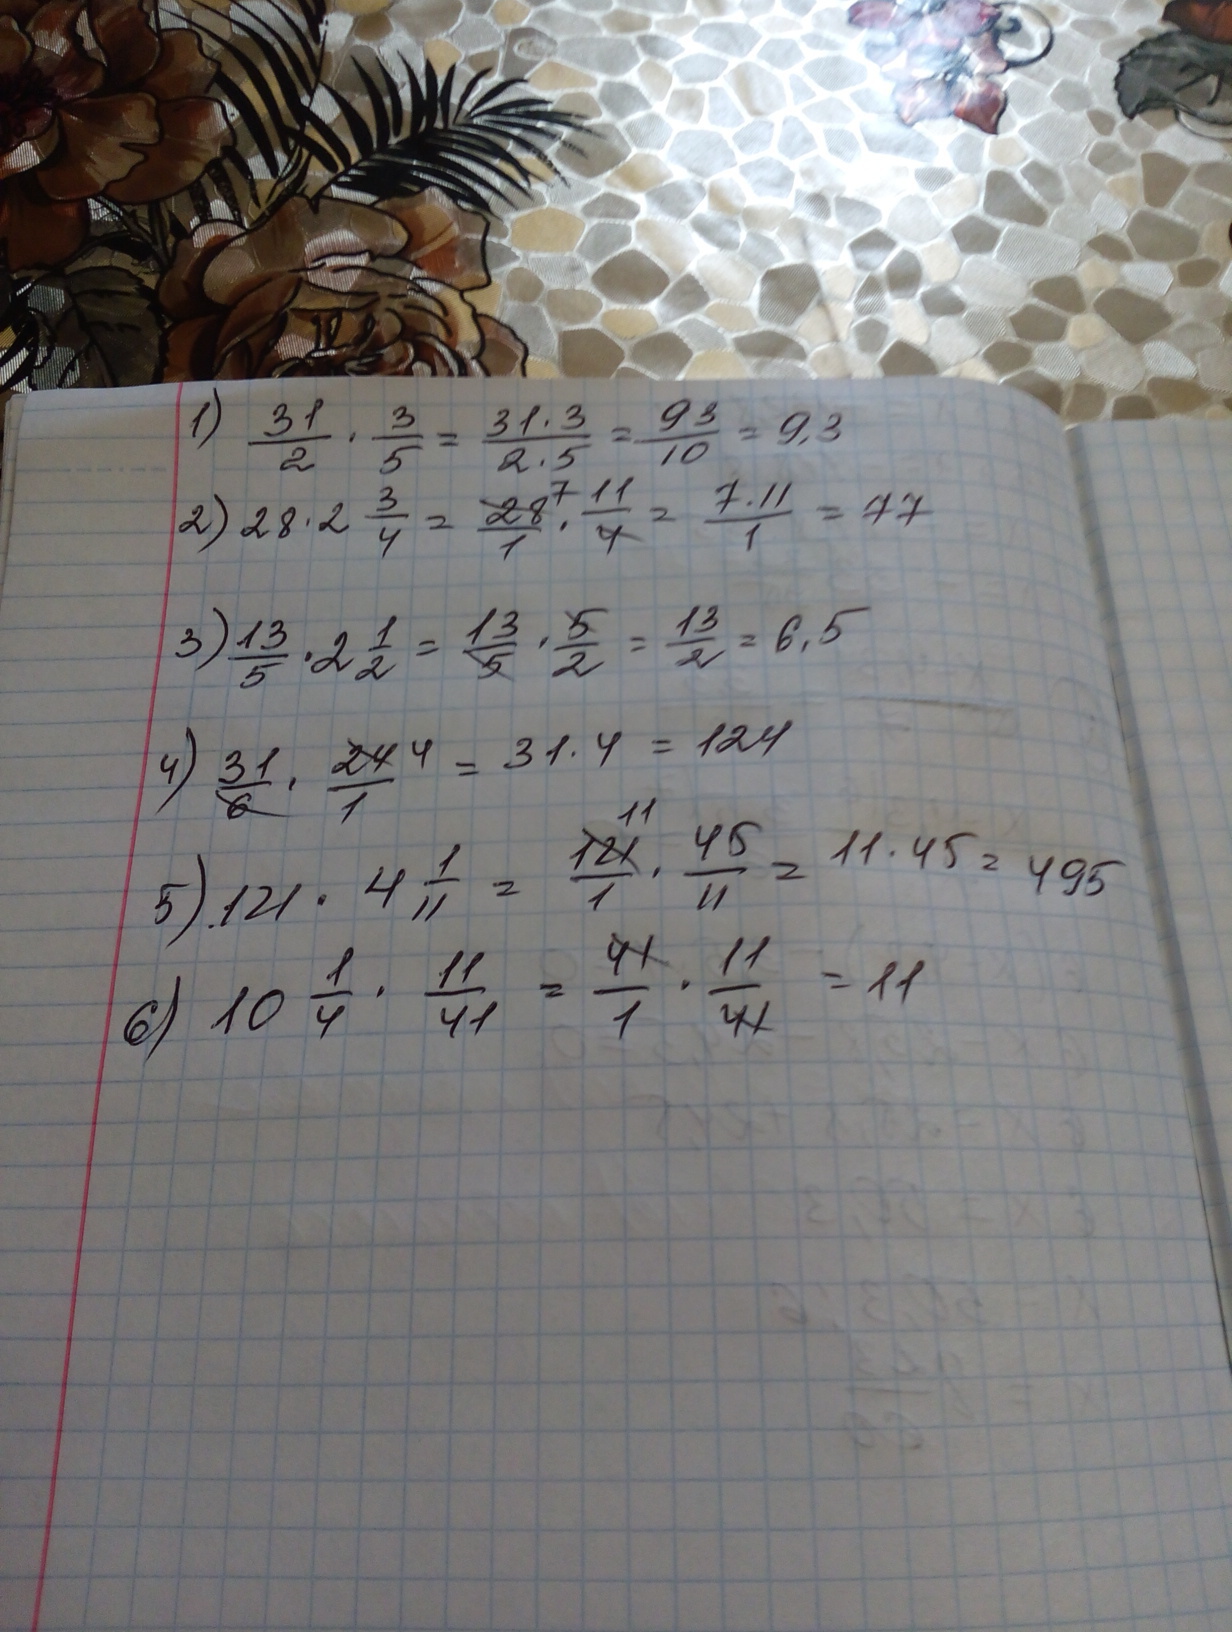 1) 31/2 · 3/5 = 31·3/2·5 = 93/10 = 9,3
2) 28·2 3/4 = 28/1 7 · 11/4 = 7·11/1 = 77
3) 13/5 · 2 1/2 = 13/5 · 5/2 = 13/2 = 6,5
4) 31/6 · 24/1 4 = 31·4 = 124
5) 121 · 4 1/11 = 121/1 11 · 45/11 = 11·45 = 495
6) 10 1/4 · 11/41 = 41/1 · 11/41 = 11